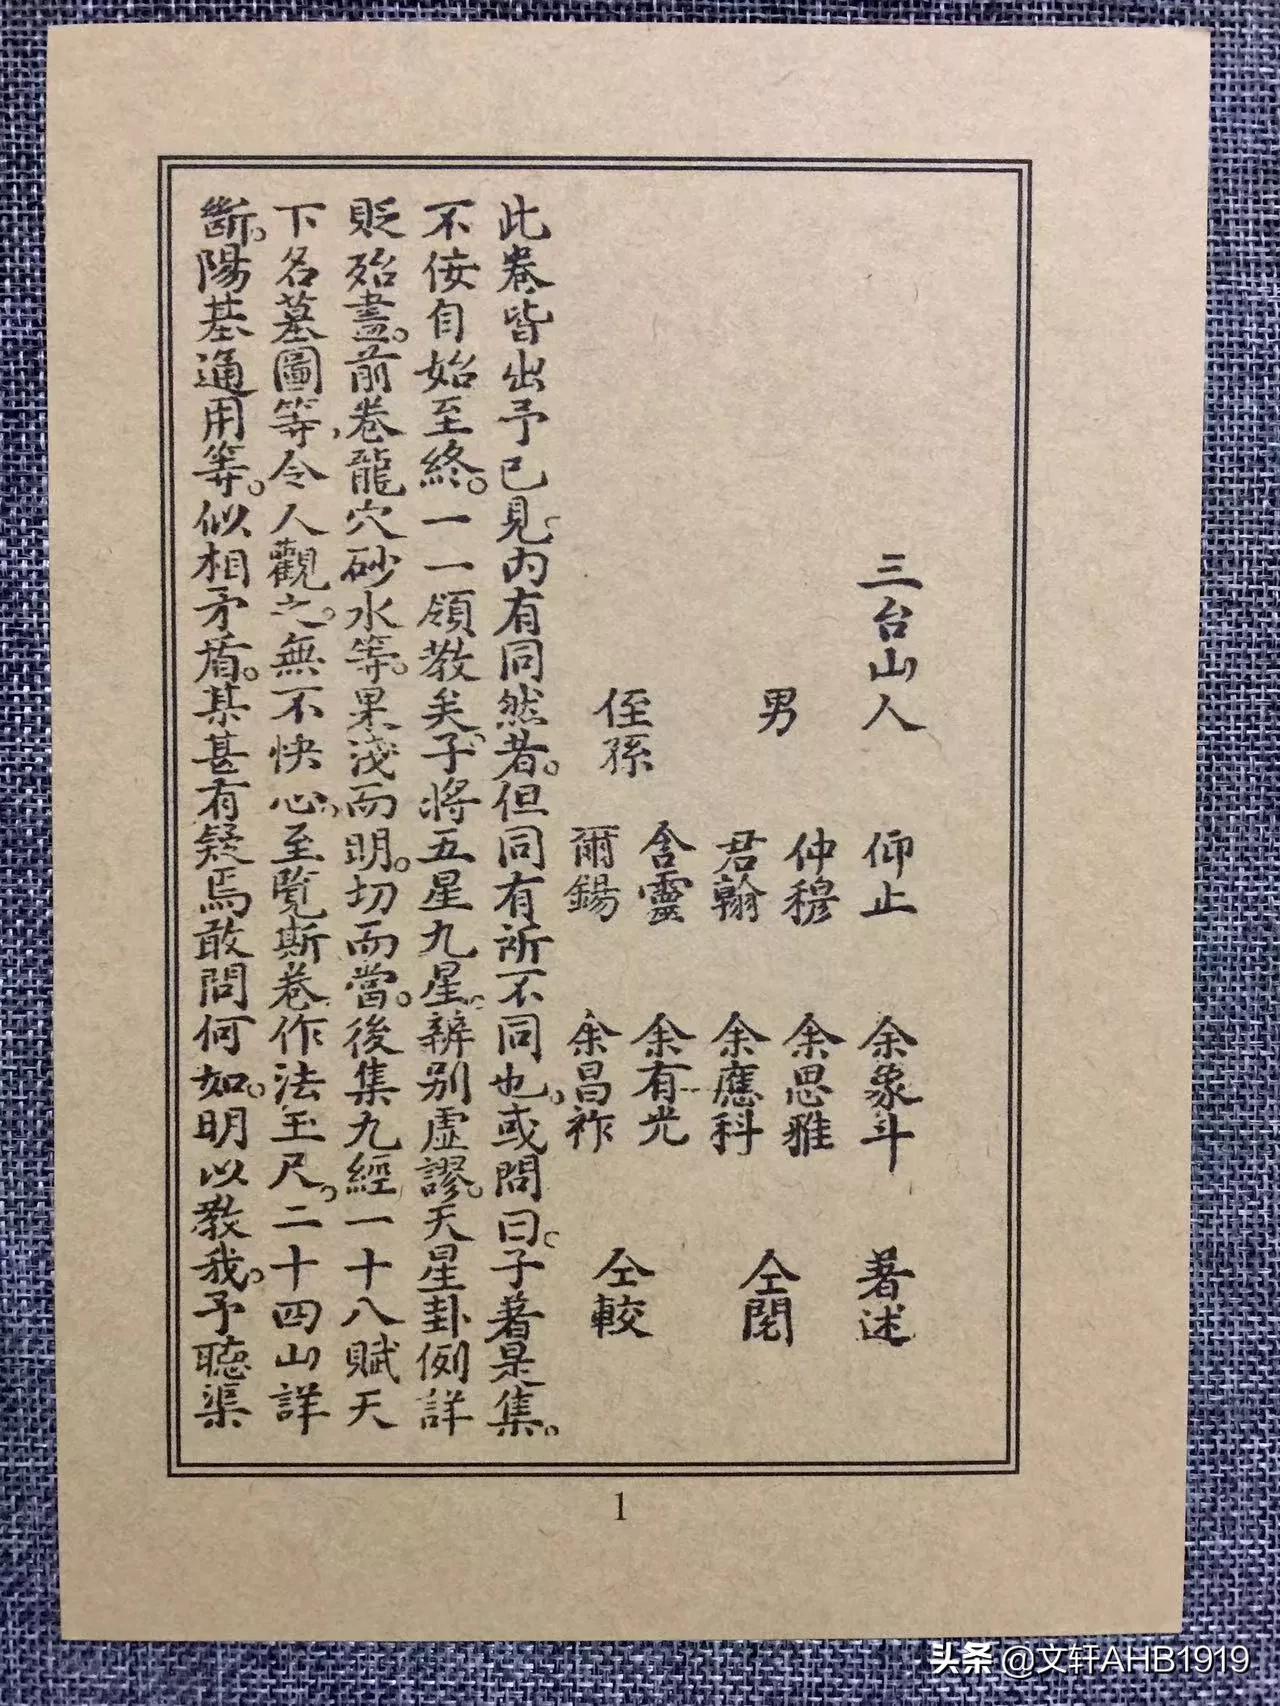 三台山人 仰止 余象斗 著述
男 仲穆 余思雅
君翰 余應科 仝閱
侄孫 含靈 余有光
爾錫 余昌祚 仝較
此卷皆出予已見。内有同然者。但同有所不同也。或問曰。子著是集。
不佞自始至終。一一領教矣。子將五星九星。辨别虛謬。天星卦例詳
貶殆盡。前卷龍穴砂水等。果淺而明。切而當。後集九經一十八賦天
下名墓圖等，令人觀之。無不快心。至覽斯卷作法玉尺。二十四山詳
斷。陽基通用等。似相矛盾。某甚有疑焉敢問何如。明以教我。予聽渠
1
头条 @文轩AHB1919